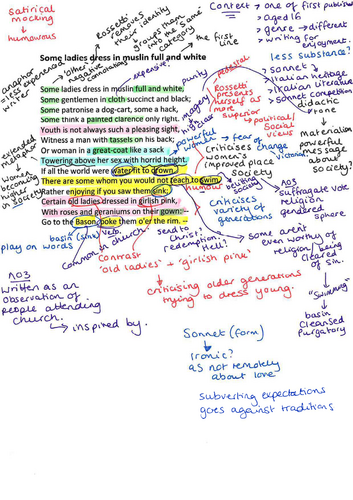 satirical
mocking
humourous
Rossetti
removes
their identity
groups them
into the same
category
Context → one of first published
→ aged 16
→ genre → different
→ writing for
enjoyment.
anaphora
→ lites experience
blurs
negative
connotations
expensive.
purity
→ the first
line
pedestal
less substance?
Some ladies dress in muslin full and white
Some ladies dress in muslin full and white,
Some gentlemen in cloth succinct and black;
Some patronise a dog-cart, some a hack,
Some think a painted clarence only right.
Youth is not always such a pleasing sight,
Witness a man with tassels on his back;
Or woman in a great-coat like a sack
Towering above her sex with horrid height.
If all the world were water fit to drown
There are some whom you would not teach to swim,
Rather enjoying if you saw them sink;
Certain old ladies dressed in girlish pink,
With roses and geraniums on their gown:—
Go to the Bason, poke them o'er the rim.—
imagery
religion
Rossetti
presents
herself as
more
superior
political/
social
views
→ Sonnet
→ Italian heritage
→ Italian literature
→ Sonnet competition
didactic
tone
materialism
powerful
message
about
society?
extended
metaphor
women
becoming
higher
in society
powerful
women
→ fear of
changes
Criticises
women's
improved place
society
Victorian
humour
belittling
society
criticises
variety of
generations
AO3
suffragate vote
religion
gendered
sphere
play on words
basin (sink)
verb.
common in church
send to
Christ?
redemption,
Hell?
→ some aren't
even worthy of
religion/being
cleared
of sin.
"swimming"
↓
basin
cleansed
purgatory
contrast
'old ladies' + 'girlish pink'
criticising older generations
trying to dress young.
AO3
Written as an
observation of
people attending
church.
→ inspired by.
Sonnet (form)
↓
ironic?
as not remotely
about love
subverting expectations
goes against traditions